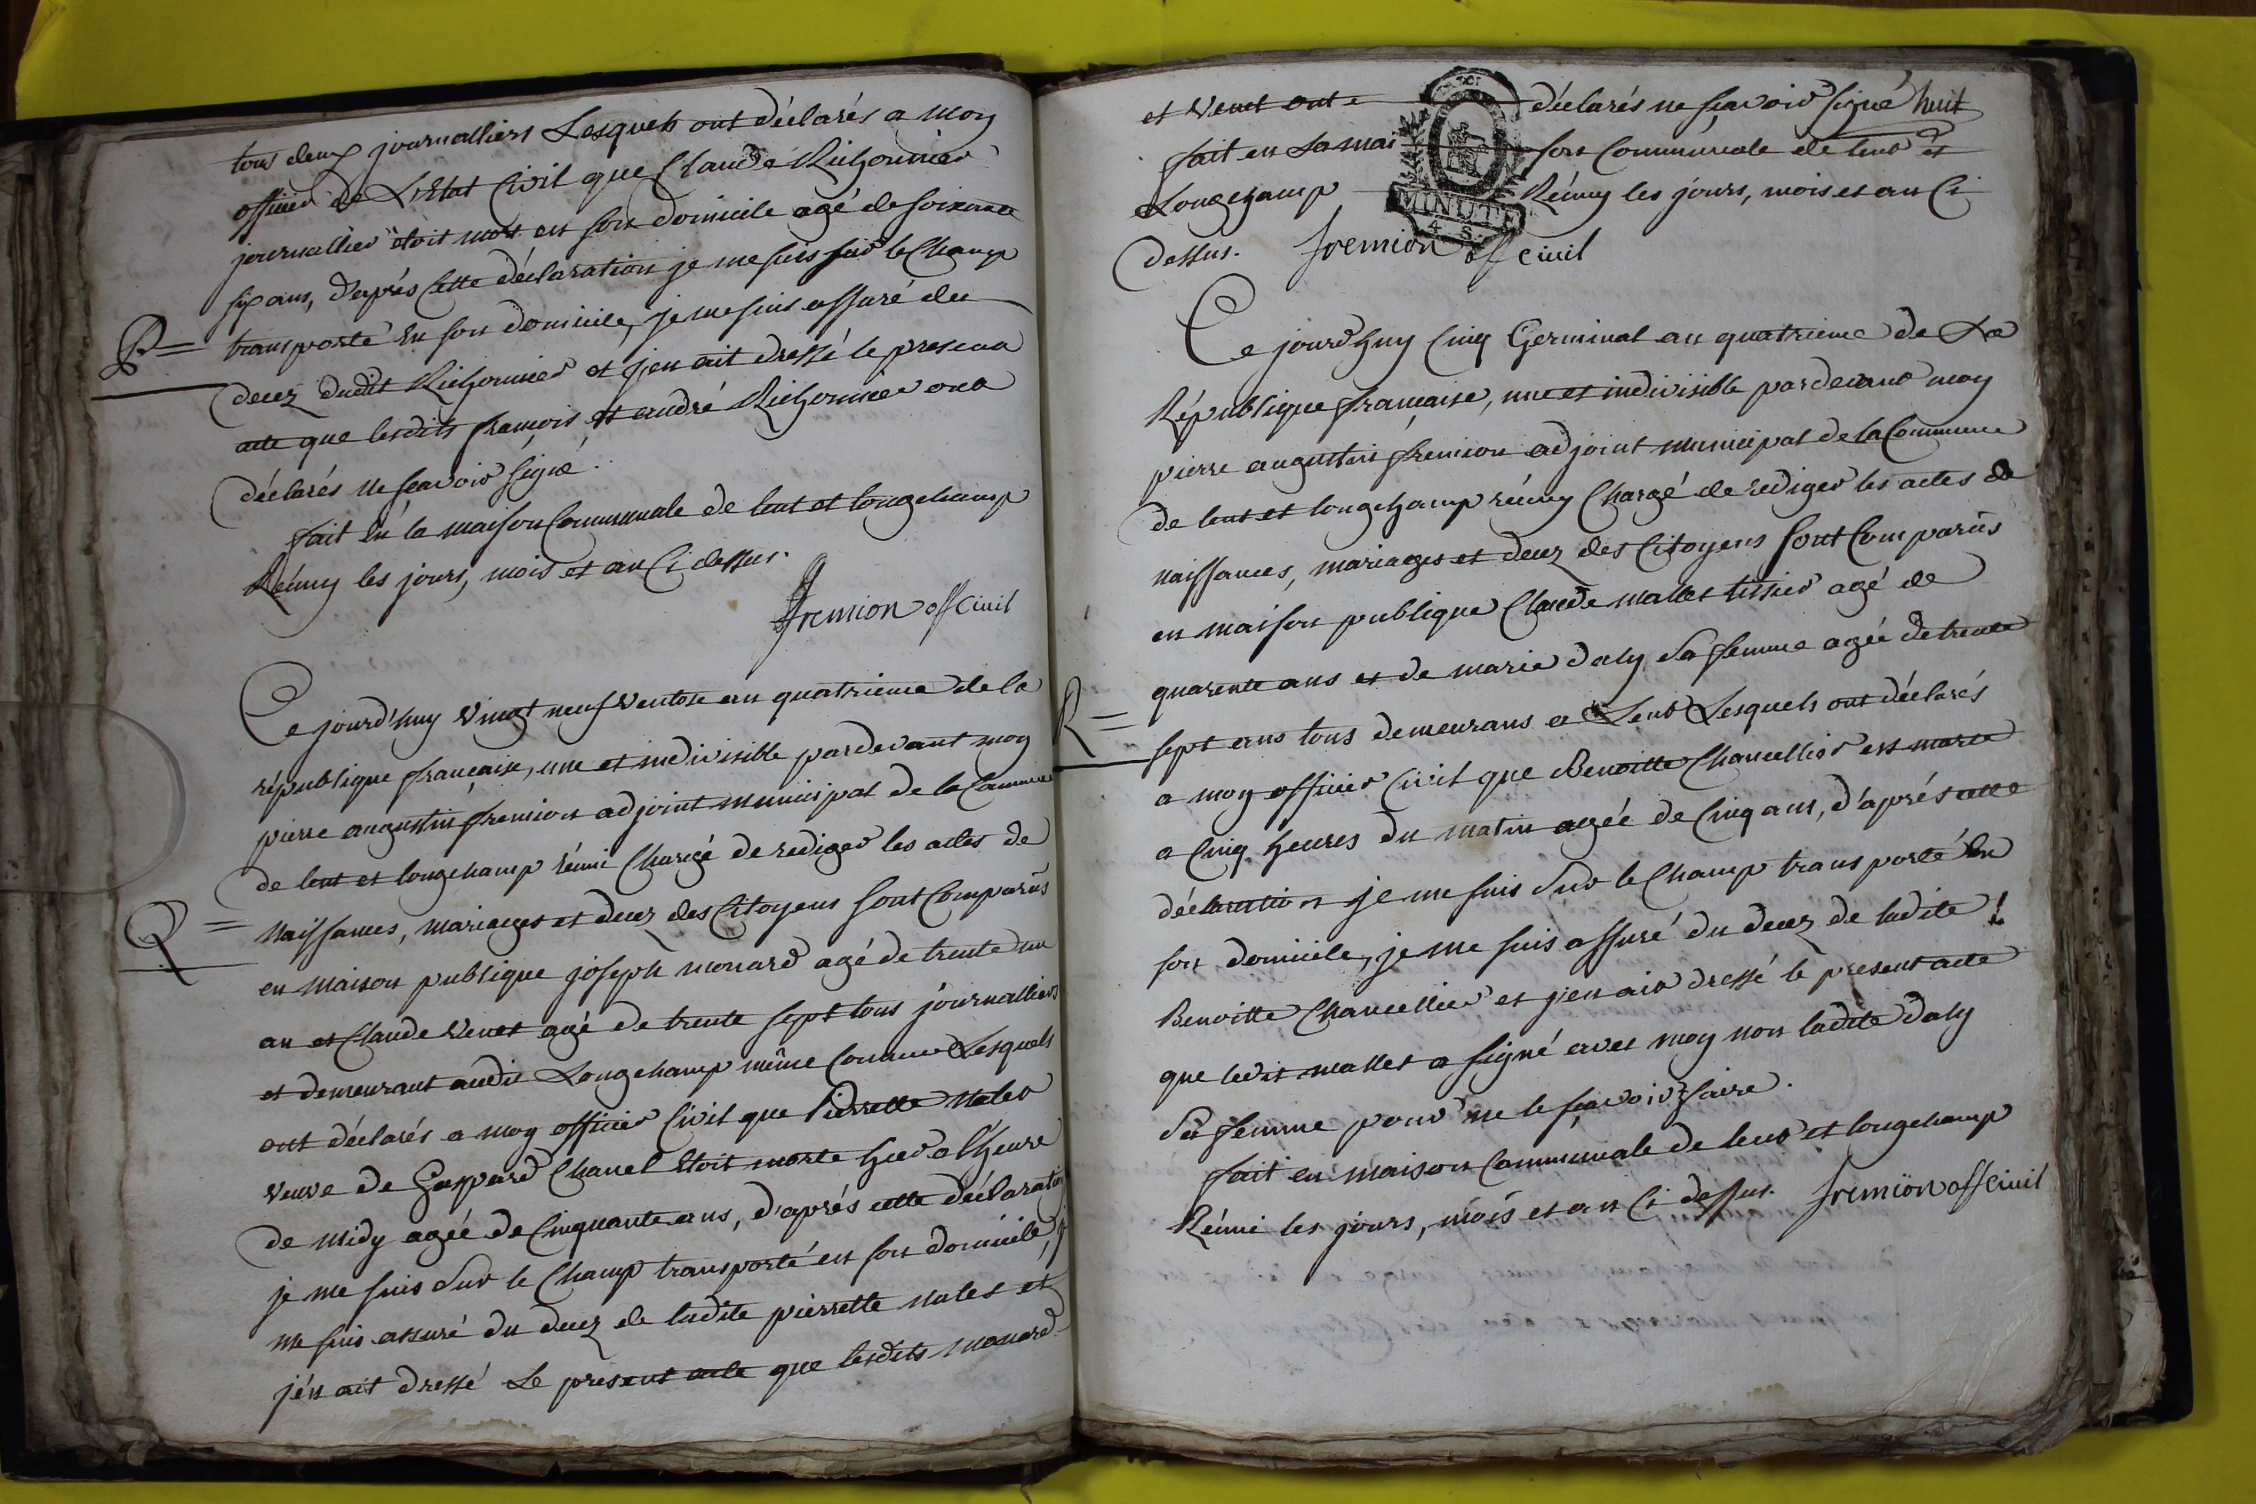 tous deux journalliers Lesquels ont déclarés a moy
officier de L'Etat Civil que Claude Richonnier
journallier étoit mort en son domicile agé de soixante
six ans, d'aprés Cette déclaration je me suis sur le Champ
R= transporté En son domicile, je me suis assuré du
decez dudit Richonnier et j'en ait dressé le present
acte que lesdits françois et andré Richonnier ont
déclarés ne sçavoir signé.
fait En la maison Communale de lent et longchamp
Réuny les jours, mois et an Ci dessus.
fremion off civil
Ce jourd'huy Vingt neuf Ventose an quatrieme de la
république française, une et indivisible pardevant moy
pierre augustin fremion adjoint municipal de la Commune
de lent et longchamp réuni Chargé de rediger les actes de
Q= Naissances, mariages et decez des Citoyens sont Comparûs
en maison publique joseph monard agé de trente un
an et Claude Venet agé de trente sept tous journalliers
et demeurant audit Longchamp même Commune Lesquels
ont déclarés a moy officier Civil que Pierrette Nales
veuve de Gaspard Chanel Etoit morte hier a l'heure
de midy agée de Cinquante ans, d'aprés cette déclaration
je me suis Sur le Champ transporté en son domicile, j
me suis assuré du decez de ladite pierrette nales et
j'en ait dressé Le present acte que lesdits monard
et Venet ont déclarés ne sçavoir signé huit
fait en La maison Communale de lent et
Longchamp Réuny les jours, mois et an Ci
MINUTE
4 S.
dessus. fremion off civil
Ce jourd'huy Cinq Germinal an quatrieme de La
République française, une et indivisible pardevant moy
pierre augustin fremion adjoint municipal de la Commune
de lent et longchamp réuny Chargé de rediger les actes de
naissances, mariages et decez des Citoyens sont Comparûs
en maison publique Claude mallet tissier agé de
quarente ans et de marie daly Sa femme agée de trente
R= sept ans tous demeurans a Lent Lesquels ont déclarés
a moy officier Civil que Benoitte Chancellier est morte
a Cinq heures du matin agée de Cinq ans, d'aprés cette
déclaration je me suis Sur le Champ transporté En
son domicile, je me suis assuré du decez de ladite
Benoitte Chancellier et j'en ait dressé le present acte
que ledit mallet a signé avec moy non ladite daly
Sa femme pour ne le sçavoir faire.
fait en maison Communale de lent et longchamp
Réuni les jours, mois et an Ci dessus. fremion off civil